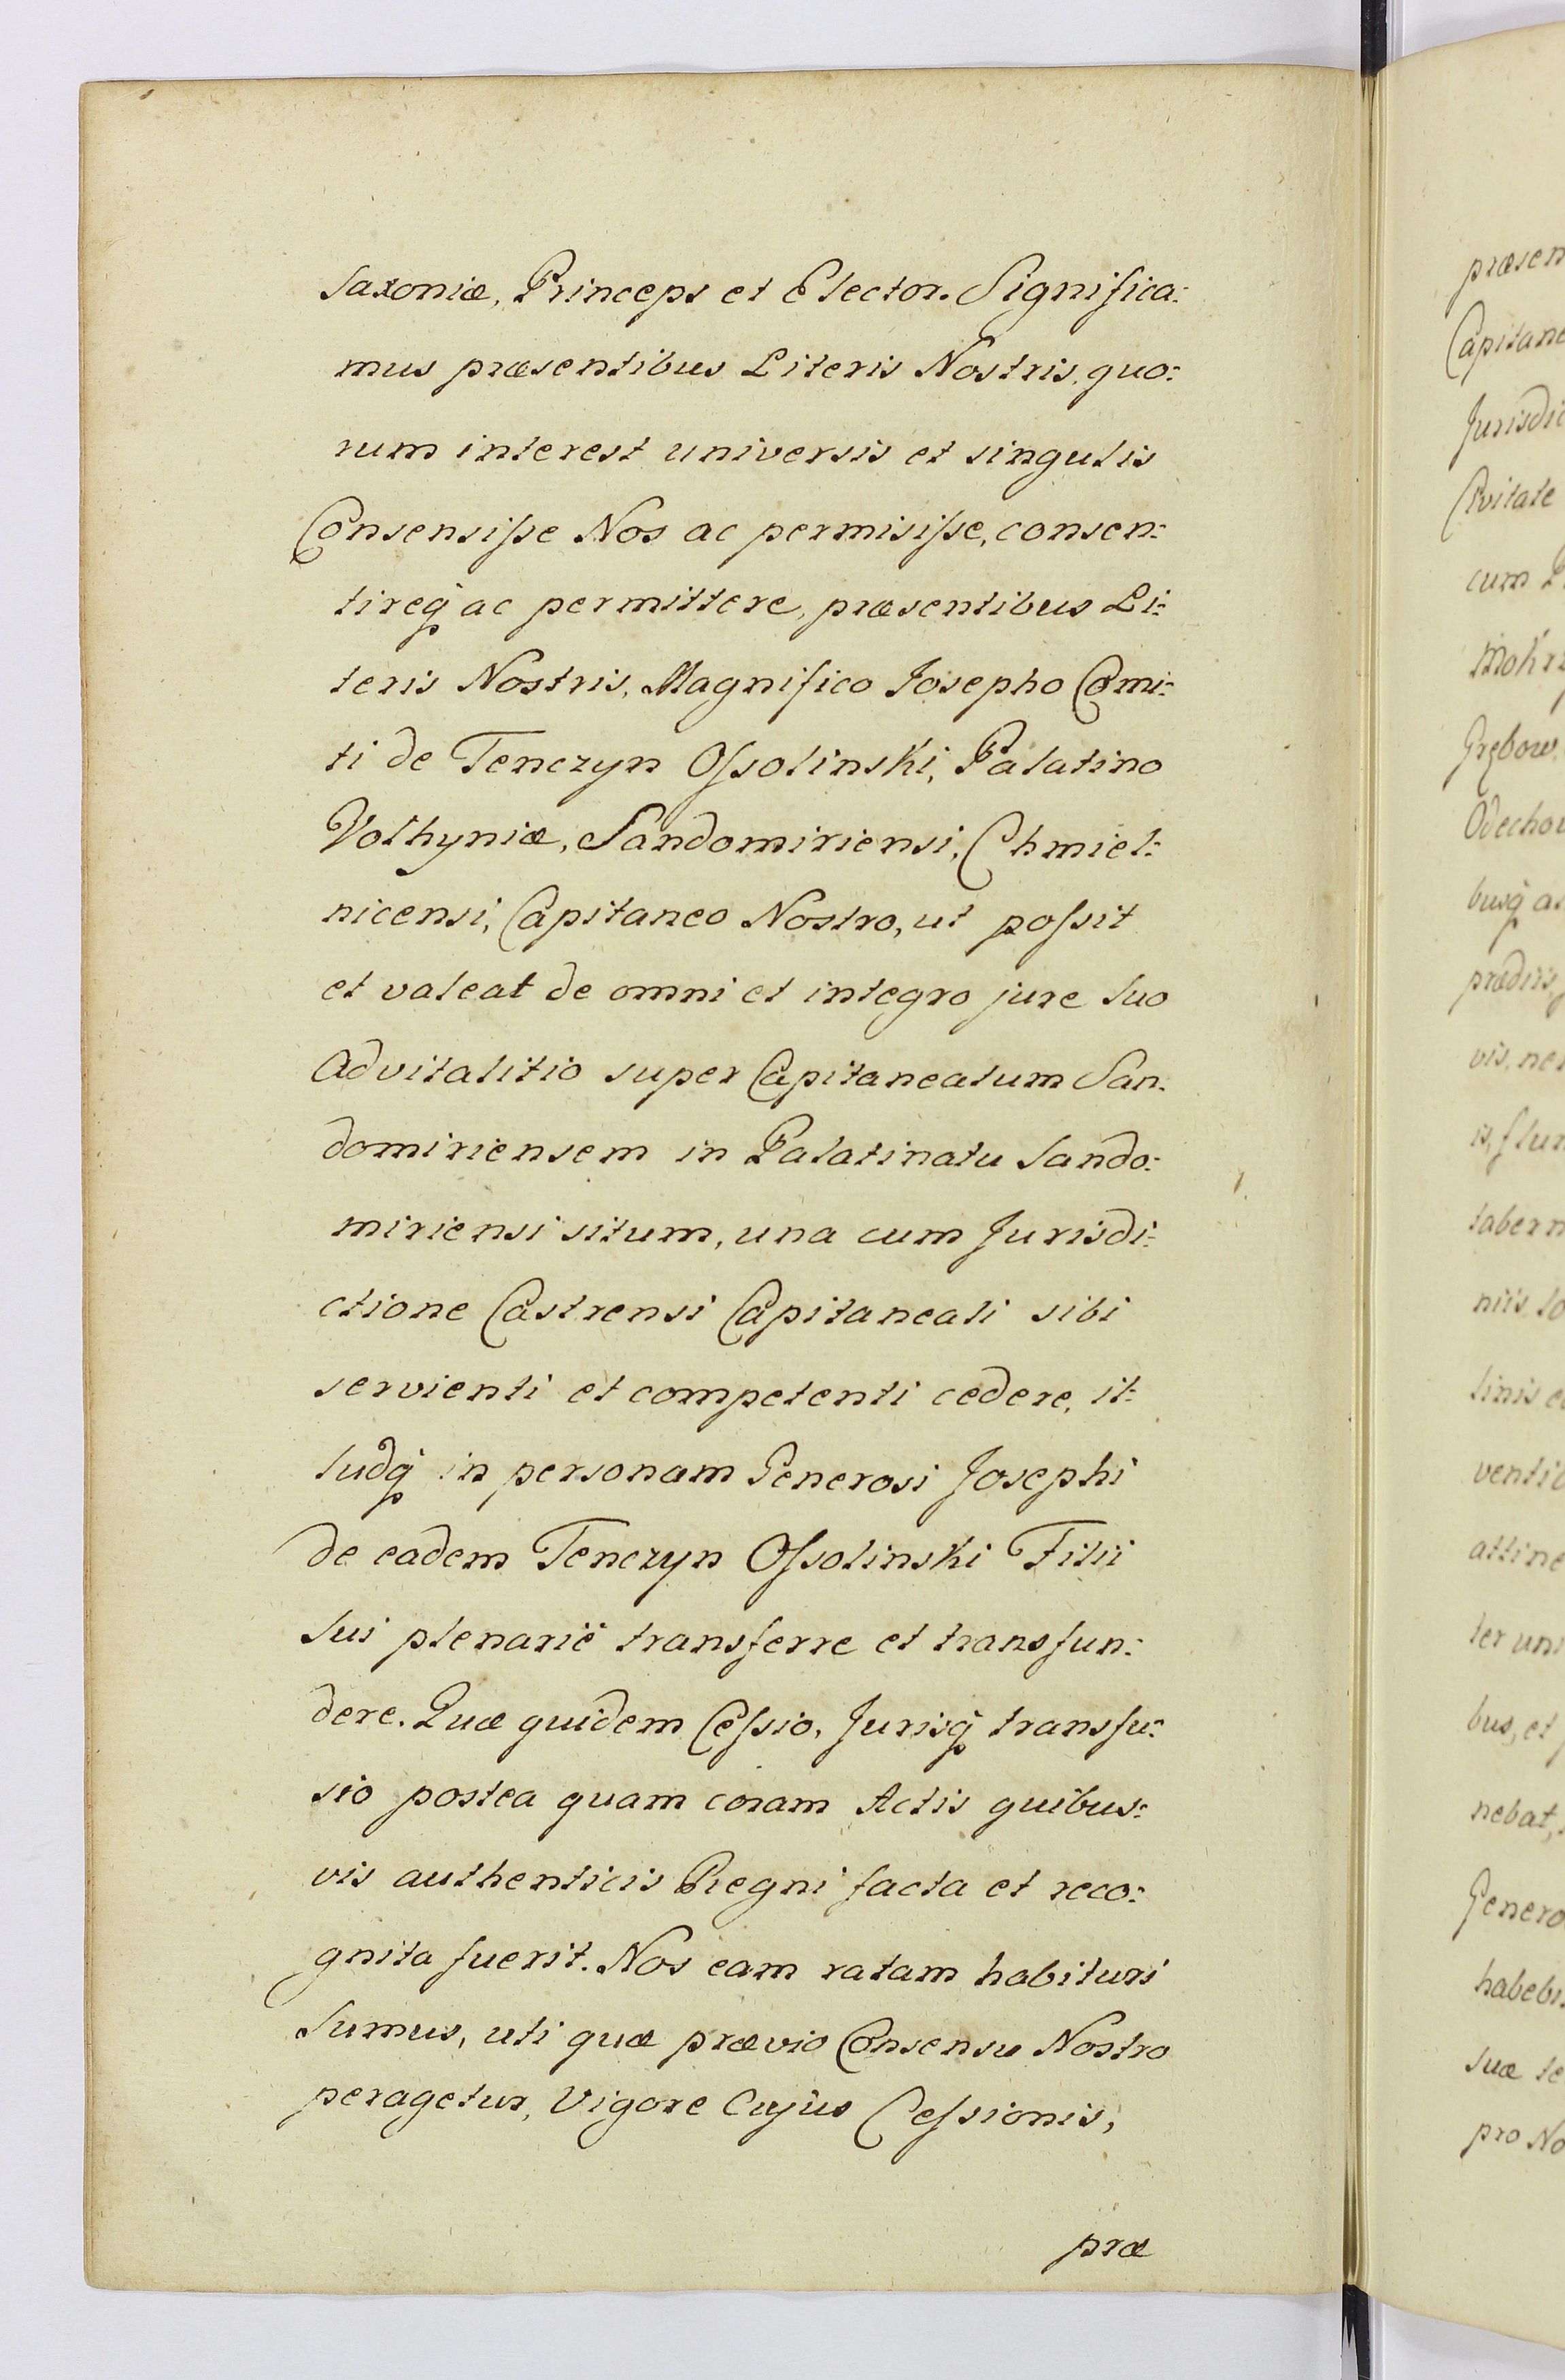 Saxoniæ, Princeps et Elector. Significa:
mus præsentibus Literis Nostris, quo:
rum interest universis et singulis
Consensiſse Nos ac permisiſse, consen:
tireq́ ac permittere, præsentibus Li:
teris Nostris, Magnifico Josepho Comi:
ti de Tenczyn Oſsolinski, Palatino
Volhyniæ, Sandomiriensi, Chmiel:
nicensi, Capitaneo Nostro, ut poſsit
et valeat de omni et integro jure suo
Advitalitio super Capitaneatum San:
domiriensem in Palatinatu Sando:
miriensi situm, una cum Jurisdi:
ctione Castrensi Capitaneali sibi
servienti et competenti cedere, il:
ludq́ in personam Generosi Josephi
de eadem Tenczyn Oſsolinski Filii
sui plenariè transferre et transfun:
dere. Quæ quidem Ceſsio, Jurisq́ transfu:
sio postea quam coram Actis quibus:
vis authenticis Regni facta et reco:
gnita fuerit. Nos eam ratam habituri
sumus, uti quæ prævio Consensu Nostro
peragetur, Vigore Cujus Ceſsionis,
præ
præsen
Capitane
Jurisdic
Civitate
cum
Mokrz
Grębow
Odechow
busq́ a
prædiis
vis, ne
is, flu
tabern
niis, lo
linis e
ventib
attine
ter uni
bus, et
nebat,
Genero
habebi
suæ te
pro No